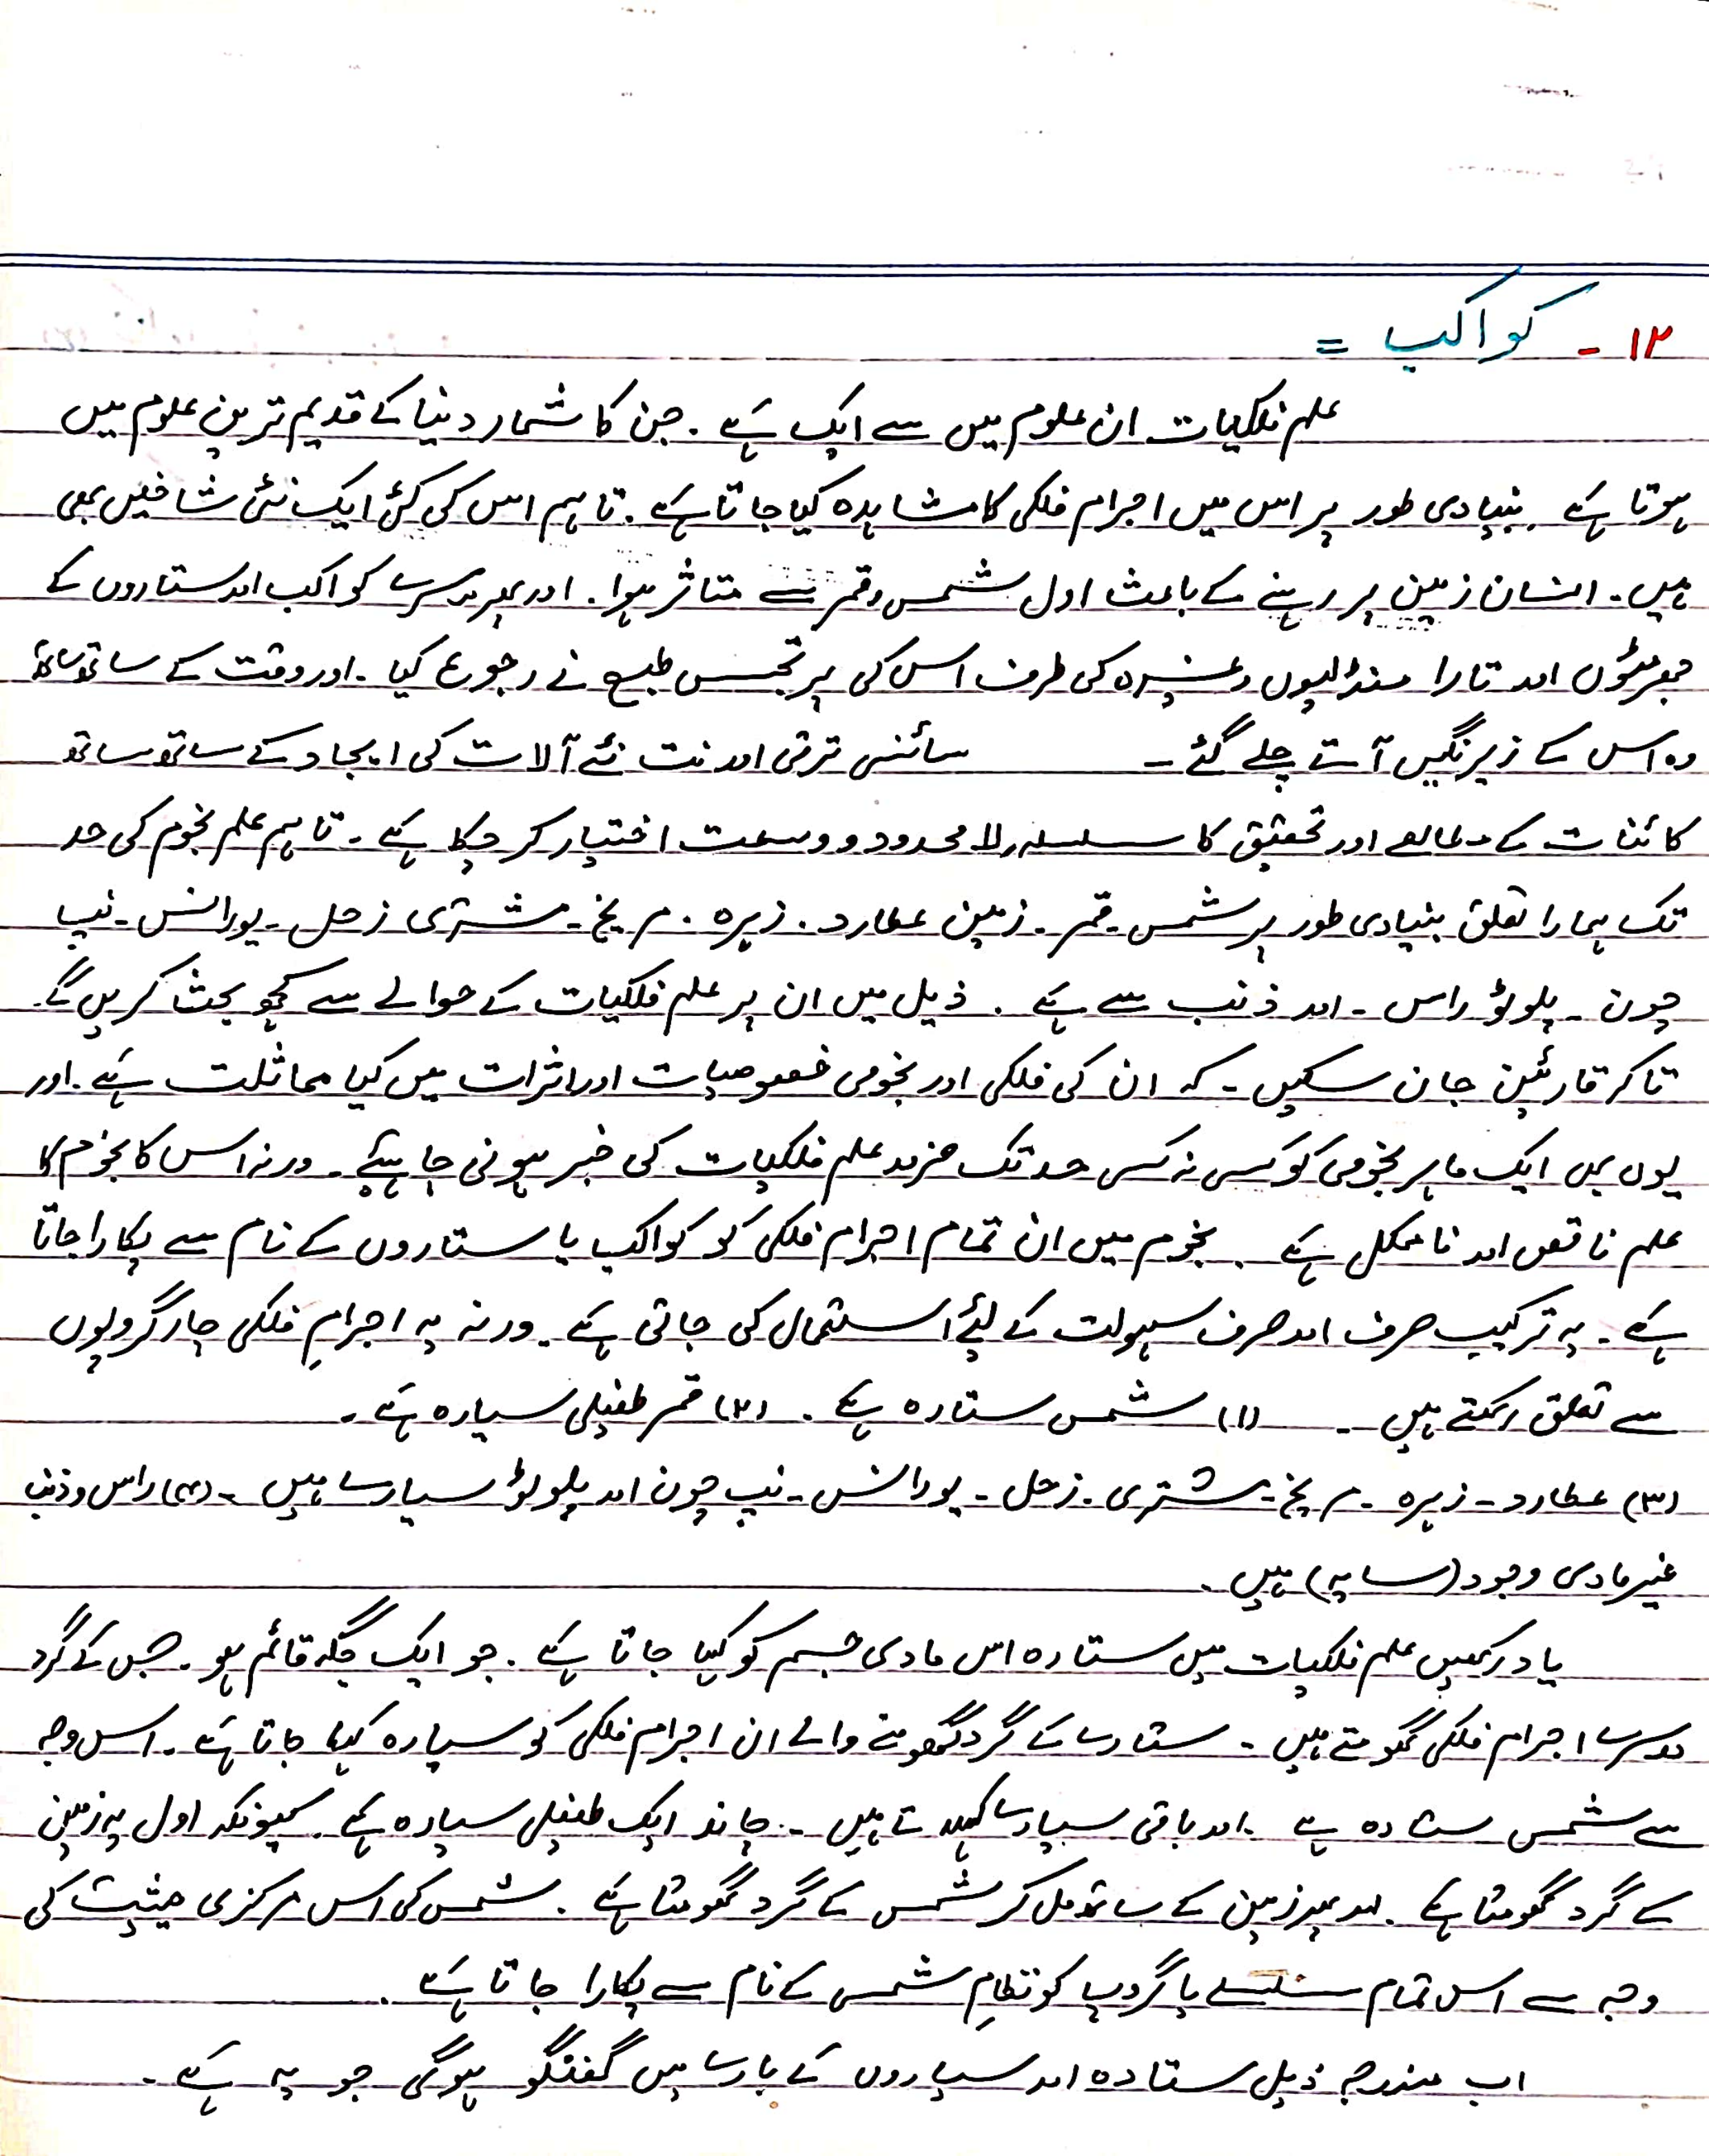 ۱۲ - کواکب =
علم فلکیات ان علوم میں سے ایک ہے ۔ جن کا شمار دنیا کے قدیم ترین علوم میں
ہوتا ہے ۔ بنیادی طور پر اس میں اجرام فلکی کا مشاہدہ کیا جاتا ہے ۔ تاہم اس کی کئی ایک نئی شاخیں بھی
ہیں ۔ انسان زمین پر رہنے کے باعث اول شمس و قمر سے متاثر ہوا ۔ اور پھر دوسرے کواکب اور ستاروں کے
جھرمٹوں اور تارا منڈلیوں وغیرہ کی طرف اس کی پر تجسس طبع نے رجوع کیا ۔ اور وقت کے ساتھ ساتھ
وہ اس کے زیر نگیں آتے چلے گئے ۔ سائنسی ترقی اور نت نئے آلات کی ایجاد کے ساتھ ساتھ
کائنات کے مطالعے اور تحقیق کا سلسلہ لا محدود و وسعت اختیار کر چکا ہے ۔ تاہم علم نجوم کی حد
تک ہمارا تعلق بنیادی طور پر شمس ۔ قمر ۔ زمین عطارد ۔ زہرہ ۔ مریخ ۔ مشتری زحل ۔ یورانس ۔ نیپ
چون ۔ پلوٹو راس ۔ اور ذنب سے ہے ۔ ذیل میں ان پر علم فلکیات کے حوالے سے کچھ بحث کریں گے ۔
تاکہ قارئین جان سکیں ۔ کہ ان کی فلکی اور نجومی خصوصیات اور اثرات میں کیا مماثلت ہے ۔ اور
یوں بھی ایک ماہر نجومی کو کسی نہ کسی حد تک مزید علم فلکیات کی خبر ہونی چاہیئے ۔ ورنہ اس کا نجوم کا
علم ناقص اور نامکمل ہے ۔ نجوم میں ان تمام اجرام فلکی کو کواکب یا ستاروں کے نام سے پکارا جاتا
ہے ۔ یہ ترکیب صرف اور صرف سہولت کے لئے استعمال کی جاتی ہے ۔ ورنہ یہ اجرامِ فلکی چار گروپوں
سے تعلق رکھتے ہیں ۔ (۱) شمس ستارہ ہے ۔ (۲) قمر طفیلی سیارہ ہے ۔
(۳) عطارد ۔ زہرہ ۔ مریخ ۔ مشتری ۔ زحل ۔ یورانس ۔ نیپ چون اور پلوٹو سیارے ہیں ۔ (۴) راس و ذنب
غیر مادی وجود (سایہ) ہیں ۔
یاد رکھیں علم فلکیات میں ستارہ اس مادی جسم کو کہا جاتا ہے ۔ جو ایک جگہ قائم ہو ۔ جس کے گرد
دوسرے اجرام فلکی گھومتے ہیں ۔ ستارے کے گرد گھومنے والے ان اجرام فلکی کو سیارہ کہا جاتا ہے ۔ اس وجہ
سے شمس ستارہ ہے ۔ اور باقی سیارے کہلاتے ہیں ۔ چاند ایک طفیلی سیارہ ہے ۔ کیونکہ اول یہ زمین
کے گرد گھومتا ہے ۔ اور پھر زمین کے ساتھ مل کر شمس کے گرد گھومتا ہے ۔ شمس کی اس مرکزی حیثیت کی
وجہ سے اس تمام سلسلے یا گروپ کو نظامِ شمسی کے نام سے پکارا جاتا ہے ۔
اب مندرجہ ذیل ستارہ اور سیاروں کے بارے میں گفتگو ہوگی جو یہ ہے ۔